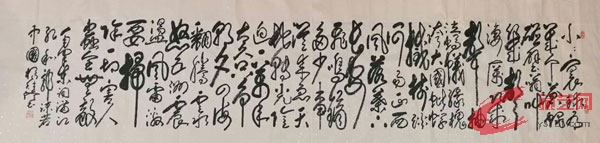 小小寰球有
几个苍蝇
碰壁嗡嗡叫
几声凄
厉几声
抽
泣蚂蚁缘槐
夸大国蚍蜉
撼树谈
何易正西
风落叶下
长安
飞鸣镝
多少事
从来急天
地转光阴
迫一万年
太久只争
朝夕四海
翻腾云水
怒五洲震
荡风雷激
要扫
除一切害人
虫全无敌
满江
红和郭沫若